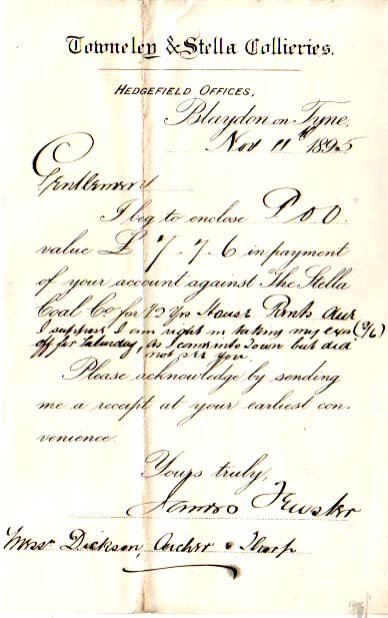 Towneley & Stella Collieries.
HEDGEFIELD OFFICES,
Blaydon on Tyne,
Nov 11th 1895
Gentlemen
I beg to enclose P O O
value £ 7 - 7 - 6 in payment
of your account against The Stella
Coal Co for
I suppose I am right in taking my exps
off for Saturday, as I came into Town but did
not see you.
Please acknowledge by sending
me a receipt at your earliest con-
venience.
Yours truly,
Messrs Dickson, Archer & Thorp